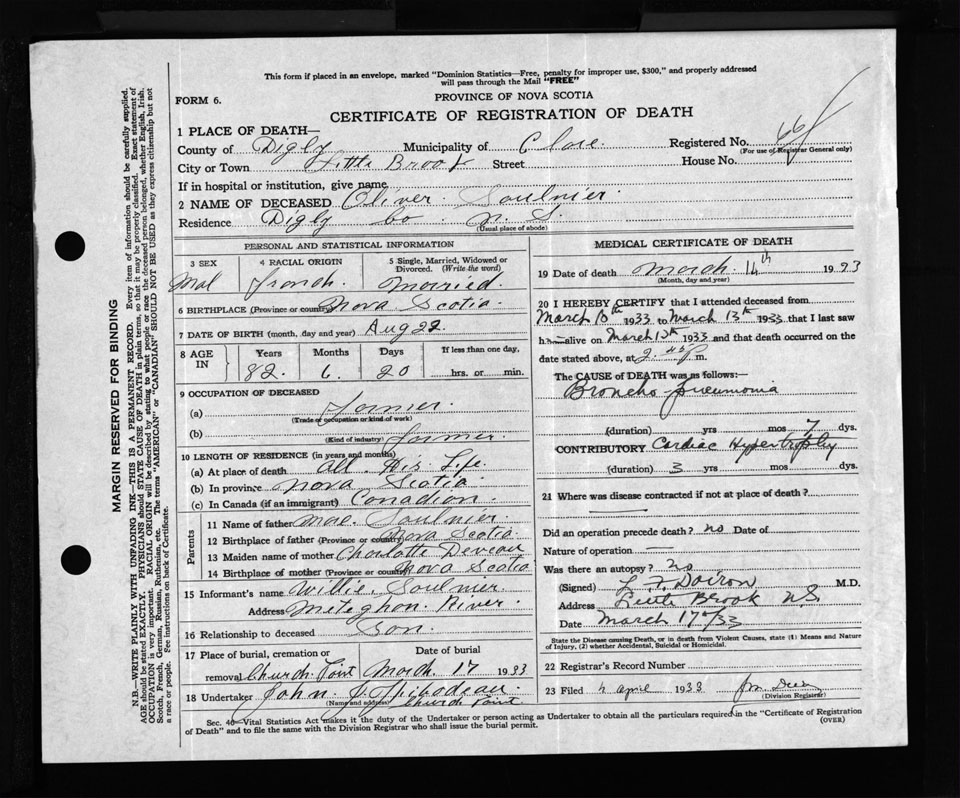 This form if placed in an envelope, marked "Dominion Statistics—Free, penalty for improper use, $300," and properly addressed
will pass through the Mail "FREE"
FORM 6.
PROVINCE OF NOVA SCOTIA
CERTIFICATE OF REGISTRATION OF DEATH
1 PLACE OF DEATH—
County of Digby Municipality of Clare. Registered No.
(For use of Registrar General only)
City or Town Little Brook Street House No.
If in hospital or institution, give name
2 NAME OF DECEASED Oliver Saulnier.
Residence Digby Co. N. S.
(Usual place of abode)
PERSONAL AND STATISTICAL INFORMATION
3 SEX 4 RACIAL ORIGIN 5 Single, Married, Widowed or
Divorced. (Write the word)
Mal French. Married.
6 BIRTHPLACE (Province or country) Nova Scotia.
7 DATE OF BIRTH (month, day and year) Aug 22.
8 AGE IN Years Months Days If less than one day.
82. 6. 20 hrs. or min.
9 OCCUPATION OF DECEASED
(a) Farmer.
(Trade or occupation or kind of work)
(b) farmer.
(Kind of industry)
10 LENGTH OF RESIDENCE (in years and months)
(a) At place of death all. His Life.
(b) In province Nova Scotia.
(c) In Canada (if an immigrant) Canadian.
Parents
11 Name of father Mac. Saulnier.
12 Birthplace of father (Province or country) Nova Scotia
13 Maiden name of mother Charlotte Deveau
14 Birthplace of mother (Province or country) Nova Scotia
15 Informant's name Willie. Saulnier.
Address Meteghan. River.
16 Relationship to deceased Son.
17 Place of burial, cremation or Date of burial
removal Church Point March 17 1933
18 Undertaker John J. Thibodeau.
(Name and address) Church Point.
MEDICAL CERTIFICATE OF DEATH
19 Date of death March. 14th 1993
(Month, day and year)
20 I HEREBY CERTIFY that I attended deceased from
March 10th 1933 to March 13th 1933 that I last saw
h alive on March 13th 1933 and that death occurred on the
date stated above, at m.
The CAUSE of DEATH was as follows:—
Broncho pneumonia
(duration) yrs mos 7 dys.
CONTRIBUTORY Cardiac Hypertrophy
(duration) 3 yrs mos dys.
21 Where was disease contracted if not at place of death?
Did an operation precede death? no Date of
Nature of operation —
Was there an autopsy? no
(Signed) L. F. Doiron M.D.
Address Little Brook N.S
Date March 17th/33
State the Disease causing Death, or in death from Violent Causes, state (1) Means and Nature
of Injury, (2) whether Accidental, Suicidal or Homicidal.
22 Registrar's Record Number
23 Filed 4 April 1933
(Division Registrar)
Sec. 40—Vital Statistics Act makes it the duty of the Undertaker or person acting as Undertaker to obtain all the particulars required in the "Certificate of Registration
of Death" and to file the same with the Division Registrar who shall issue the burial permit. (OVER)
MARGIN RESERVED FOR BINDING
N.B.—WRITE PLAINLY WITH UNFADING INK—THIS IS A PERMANENT RECORD. Every item of information should be carefully supplied.
AGE should be stated EXACTLY. PHYSICIANS should STATE CAUSE OF DEATH in plain terms, so that it may be properly classified. Exact statement of
OCCUPATION is very important. RACIAL ORIGIN will be described by stating to what people or race the deceased person belonged, whether English, Irish,
Scotch, French, German, Russian, Ruthenian, etc. The terms "AMERICAN" or "CANADIAN" SHOULD NOT BE USED as they express citizenship but not
a race or people. See instructions on back of Certificate.